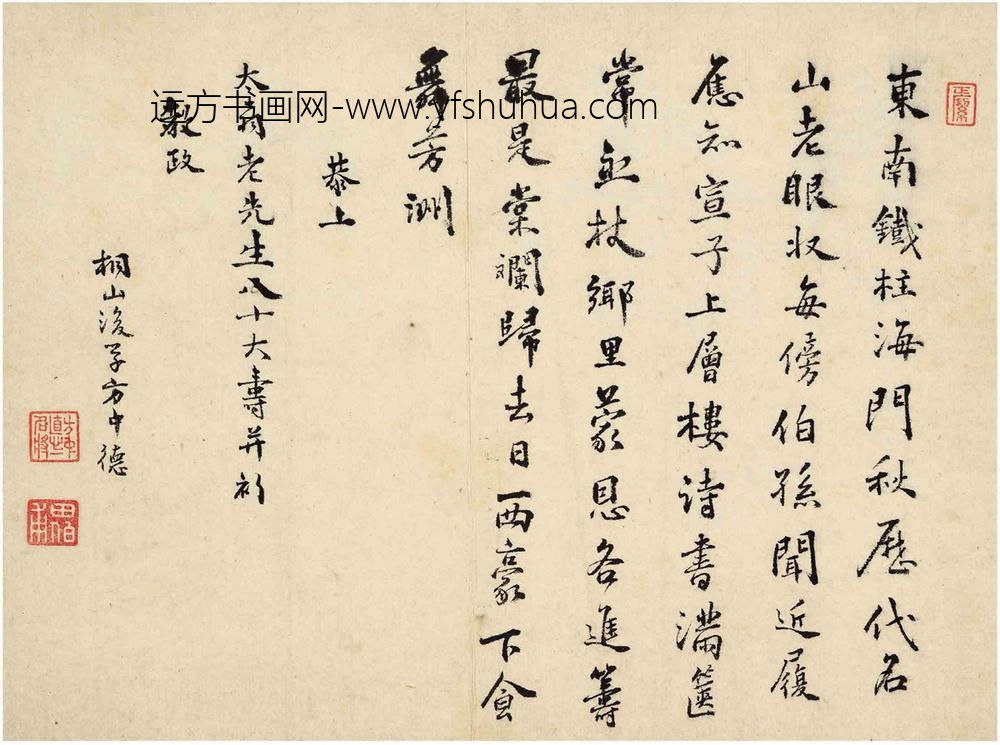 東南鐵柱海門秋歷代名
山老眼收每傍伯孫聞近履
應知宣子上層樓詩書滿篋
常無杖鄉里蒙恩各進籌
最是棠斕歸去日一西豪下會
舞芳洲
恭上
太翁老先生八十大壽并祈
教政
桐山後學方中德
远方书画网-www.yfshuhua.com